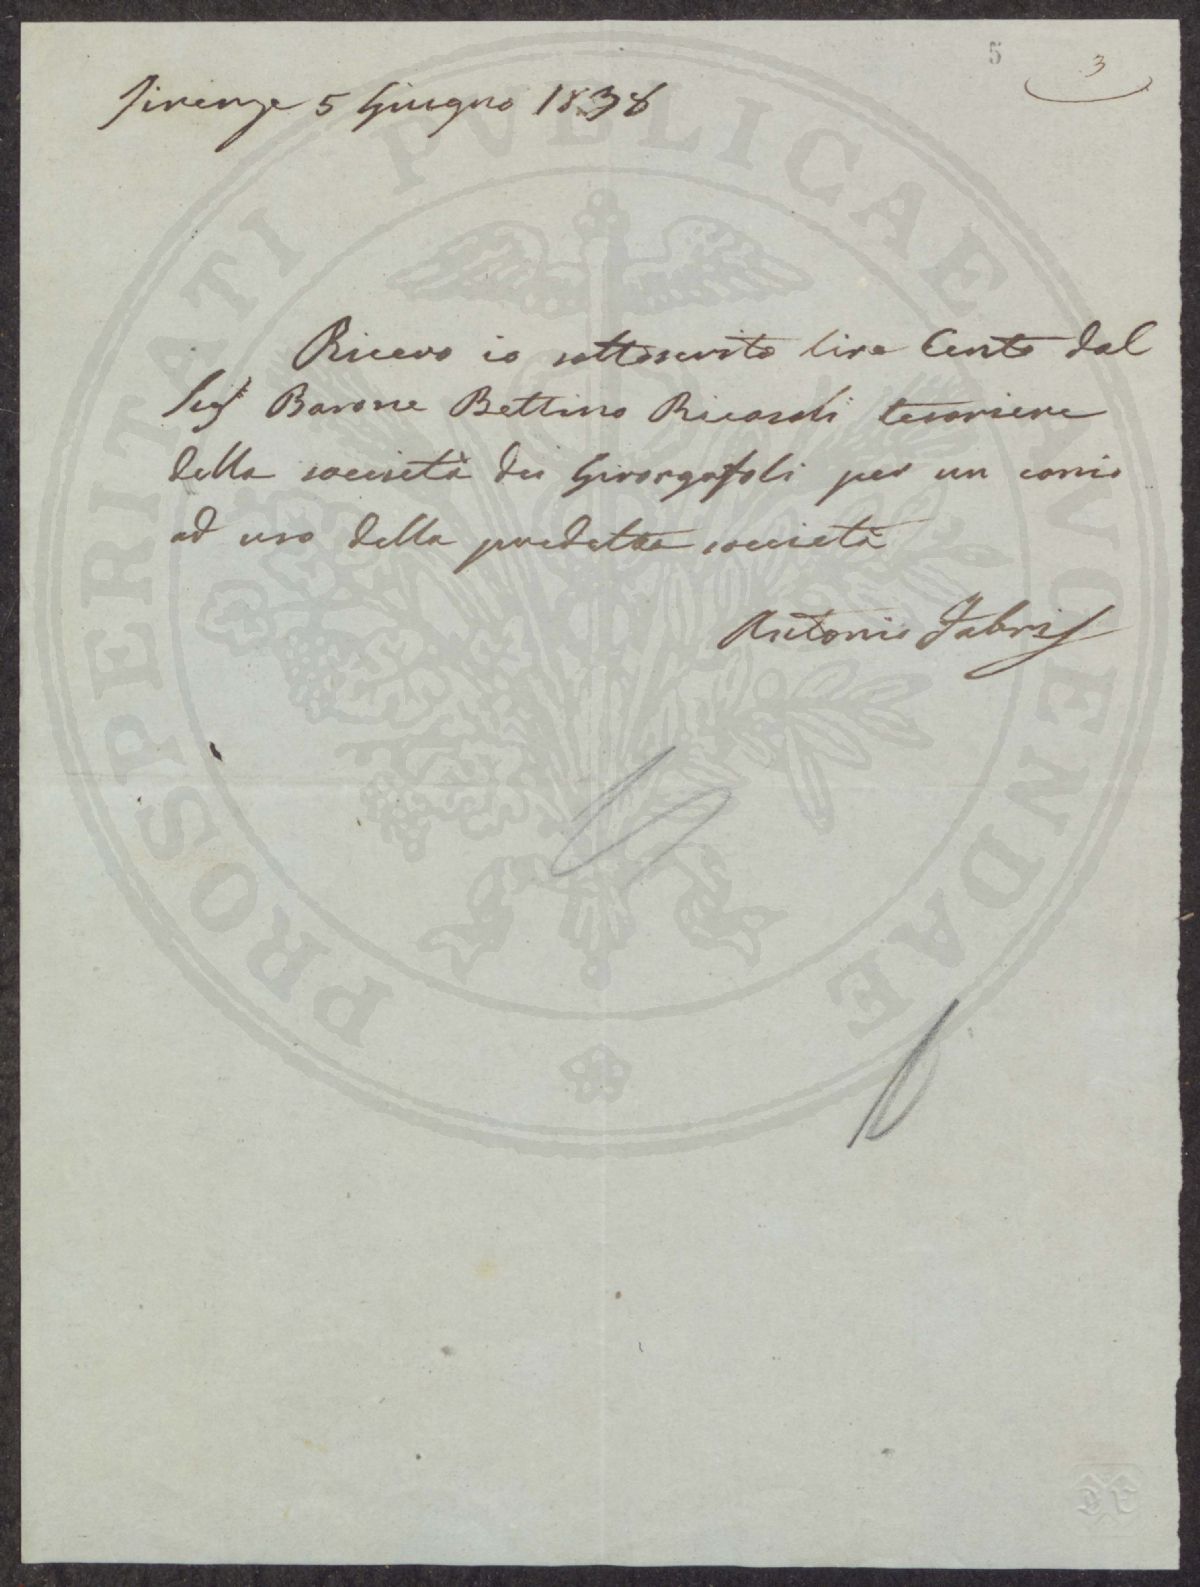 5
3
Firenze 5 Giugno 1838
Ricevo io sottoscrito lire Cento dal
Sigr Barone Bettino Ricasoli tesoriere
della società dei Georgofoli per un conio
ad uso della predetta società
Antonio Fabris
PROSPERITATI PVBLICAE AVGENDAE